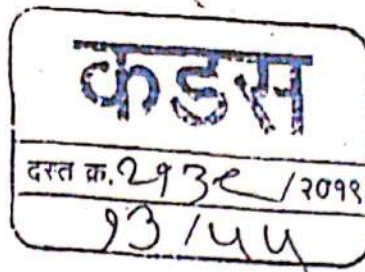 कडस
दस्त क्र. २१३९ /२०१९
१३ /५५